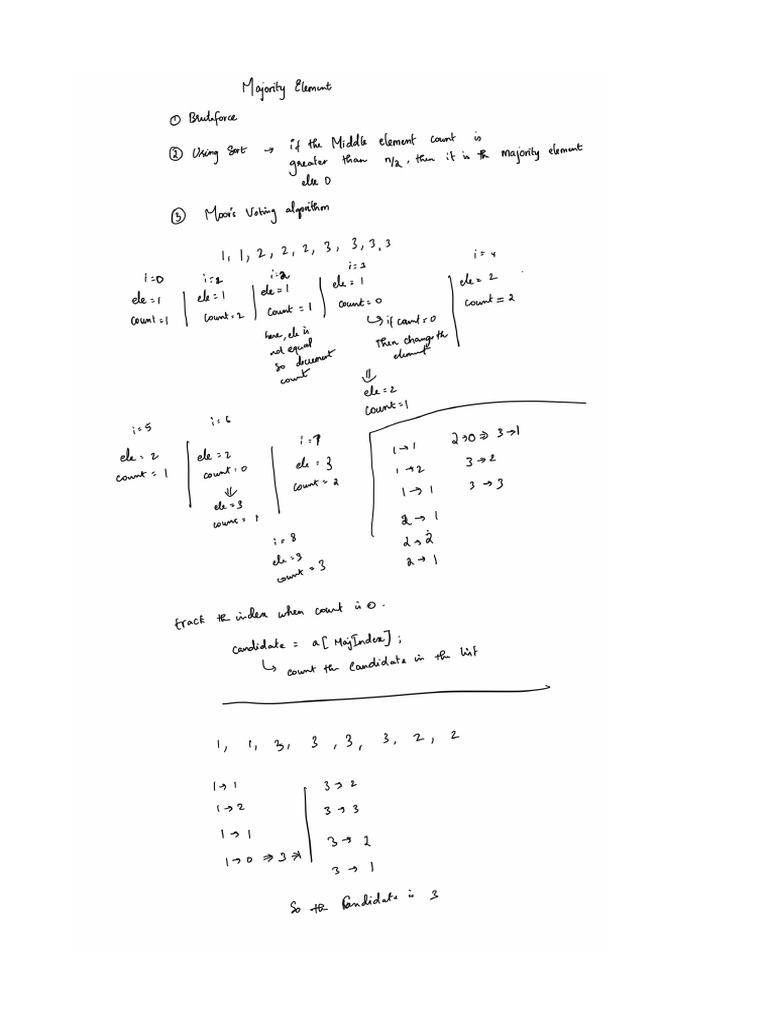 Majority Element
① Bruteforce
② Using Sort → if the Middle element count is
greater than n/2, then it is the majority element
else 0
③ Moor's Voting algorithm
1, 1, 2, 2, 2, 3, 3, 3, 3
i=0
ele=1
count=1
i=2
ele=1
count=2
i=2
ele=1
count=1
here, ele is
not equal
so decrement
count
i=3
ele=1
count=0
↳ if count=0
Then change the
element
⇓
ele=2
count=1
i=4
ele=2
count=2
i=5
ele=2
count=1
i=6
ele=2
count=0
⇓
ele=3
count=1
i=7
ele=3
count=2
i=8
ele=3
count=3
1→1
1→2
1→1
2→1
2→2
2→1
2→0⇒3→1
3→2
3→3
track the index when count is 0.
candidate = a[MajIndex];
↳ count the candidate in the list
1, 1, 3, 3, 3, 3, 2, 2
1→1
1→2
1→1
1→0⇒3→1
3→2
3→3
3→2
3→1
So the Candidate is 3